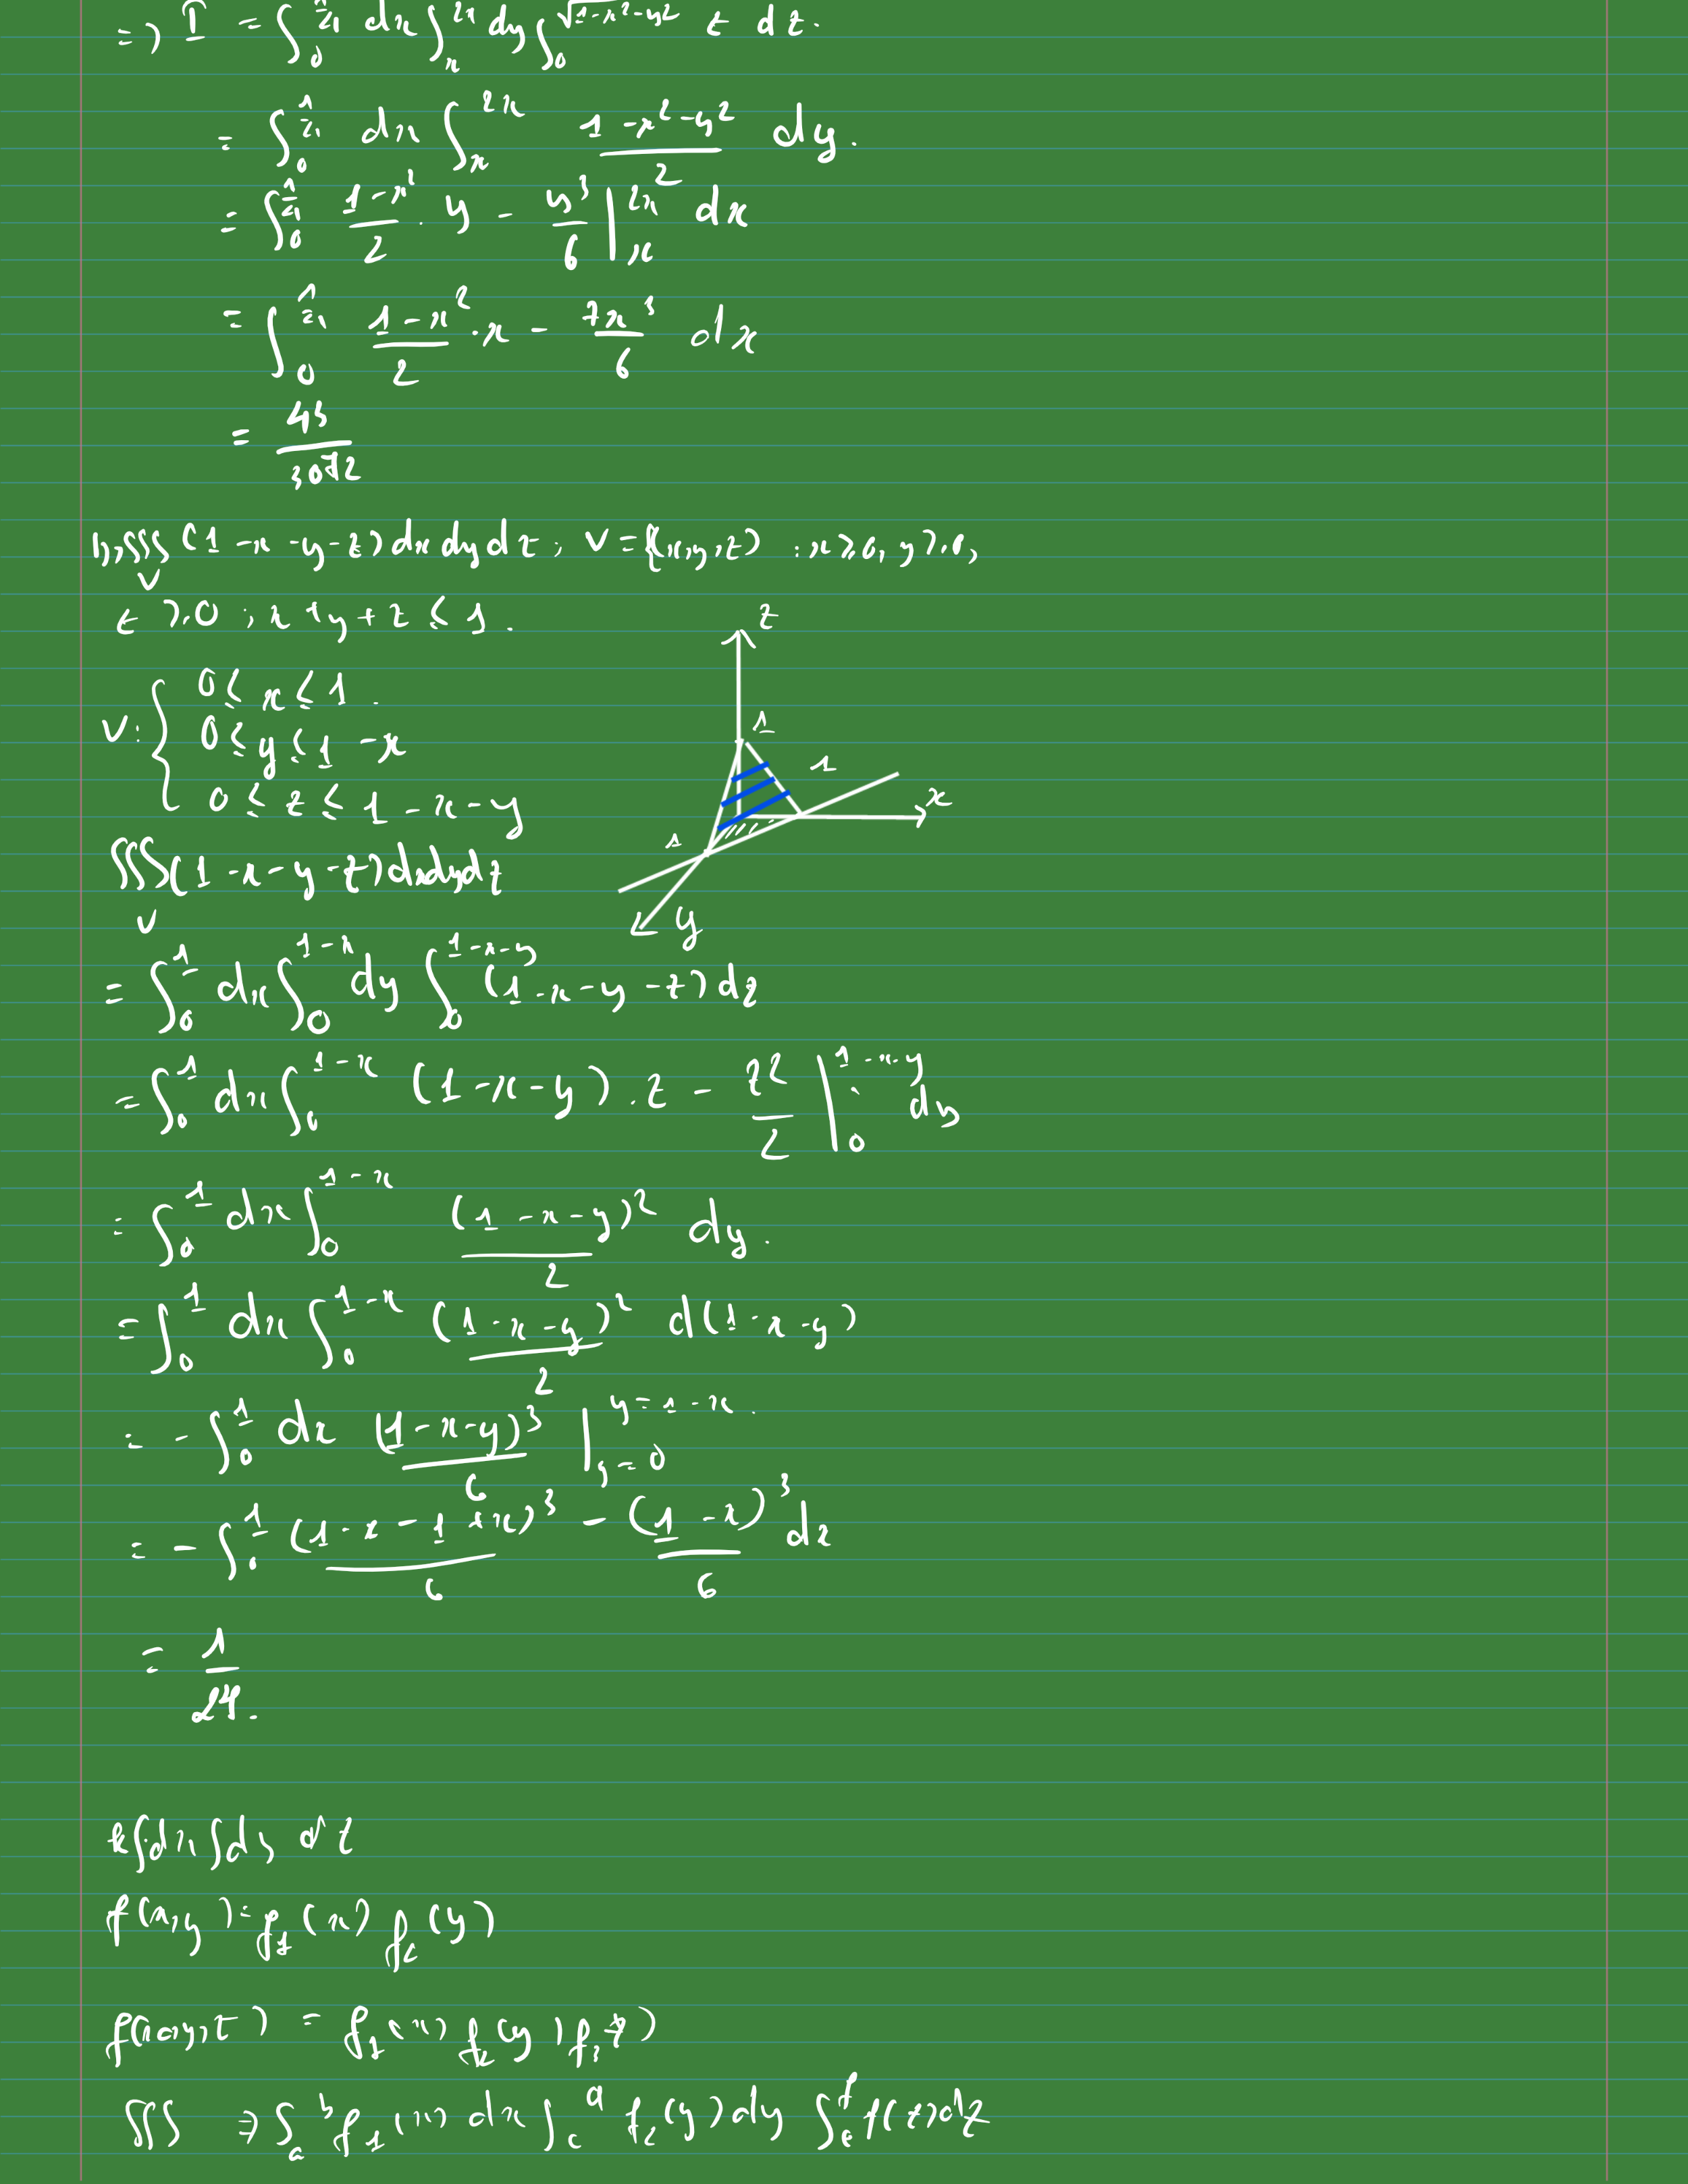 => I = ∫_0^{1/2} dx ∫_x^{2x} dy ∫_0^{√(1-x²-y²)} z dz.
= ∫_0^{1/2} dx ∫_x^{2x} (1-x²-y²)/2 dy.
= ∫_0^{1/2} (1-x²)/2 . y - y³/6 |_x^{2x} dx
= ∫_0^{1/2} (1-x²)/2 . x - 7x³/6 dx
V = {(x,y,z) : x ≥ 0, y ≥ 0,
z ≥ 0 ; x + y + z ≤ 1.
z
0 ≤ x ≤ 1.
V: { 0 ≤ y ≤ 1 - x
0 ≤ z ≤ 1 - x - y
1
1
x
1
y
∭_V (1 - x - y - z) dxdydz
= ∫_0^1 dx ∫_0^{1-x} dy ∫_0^{1-x-y} (1 - x - y - z) dz
= ∫_0^1 dx ∫_0^{1-x} (1 - x - y) . z - z²/2 |_0^{1-x-y} dy
= ∫_0^1 dx ∫_0^{1-x} (1 - x - y)²/2 dy.
= ∫_0^1 dx ∫_0^{1-x} (1 - x - y)²/2 d(1 - x - y)
= - ∫_0^1 dx (1 - x - y)³/6 |_{y=0}^{y=1-x}.
= - ∫_0^1 (1 - x - 1 + x)³/6 - (1 - x)³/6 dx
= 1/24.
f(x,y) = f_1(x) f_2(y)
f(x,y,z) = f_1(x) f_2(y) f_3(z)
∭ => ∫_a^b f_1(x) dx ∫_c^d f_2(y) dy ∫_e^f f(z) dz